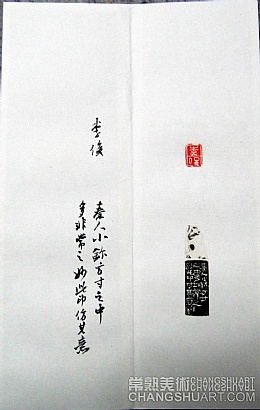 李俊
秦人小鉨方寸之中
多非常之妙此印仿其意
常熟美術 CHANGSHUART
CHANGSHUART.COM